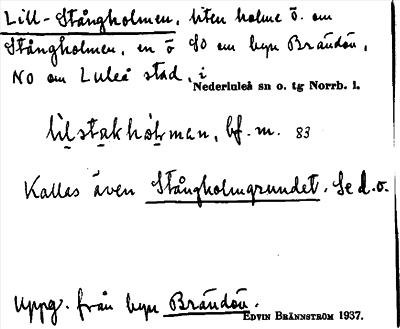 Lill-Stångholmen, liten holme ö. om
Stångholmen, en ö SO om byn Brändön,
NO om Luleå stad, i
Nederluleå sn o. tg Norrb. l.
lil̲sta̲kho̲l̲man, bf. m. 83
Kallas även Stångholmgrundet. Se d.o.
Uppg. från byn Brändön.
EDVIN BRÄNNSTRÖM 1937.